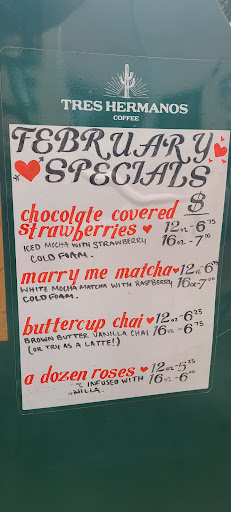 TRES HERMANOS
COFFEE
FEBRUARY
SPECIALS
$
chocolate covered
strawberries 12oz-6.75
ICED MOCHA WITH STRAWBERRY 16oz-7.00
COLD FOAM.
marry me matcha 12oz
WHITE MOCHA MATCHA WITH RASPBERRY 16oz-7
COLD FOAM.
buttercup chai 12oz-6.25
BROWN BUTTER VANILLA CHAI 16oz-6.75
(OR TRY AS A LATTE!)
a dozen roses 12oz-5.25
INFUSED WITH 16oz-6.00